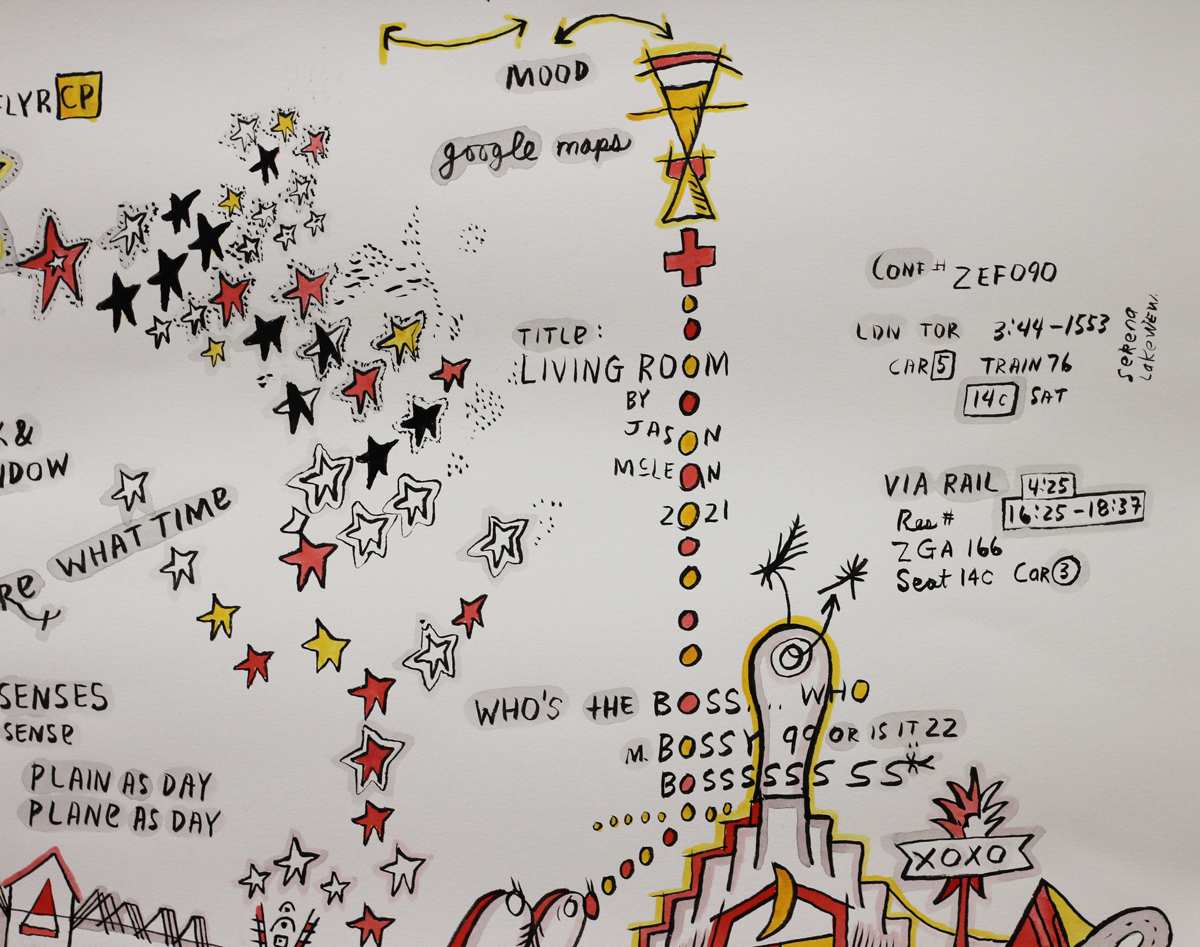 FLYR CP
MOOD
google maps
TITLE:
LIVING ROOM
BY
JASON
MCLEAN
2021
CONF# ZEF090
LDN TOR 3:44-1553
CAR 5 TRAIN 76
14C SAT
Serena
Lakeview.
VIA RAIL 4:25
Res # 16:25-18:37
ZGA 166
Seat 14C Car 3
&
WHAT TIME
SENSES
SENSE
PLAIN AS DAY
PLANE AS DAY
WHO'S THE BOSS... WHO
M. BOSSY 99 OR IS IT 22
BOSSSSSS SS
XOXO